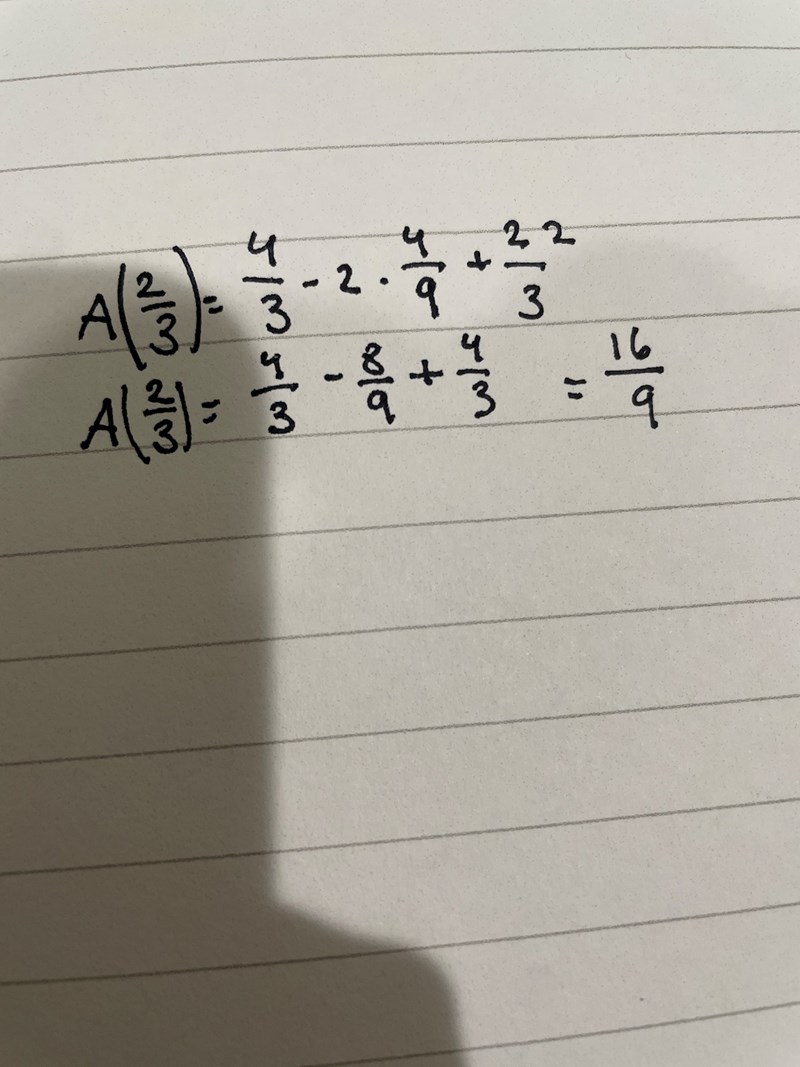 A(2/3) = 4/3 - 2 · 4/9 + 2²/3
A(2/3) = 4/3 - 8/9 + 4/3 = 16/9